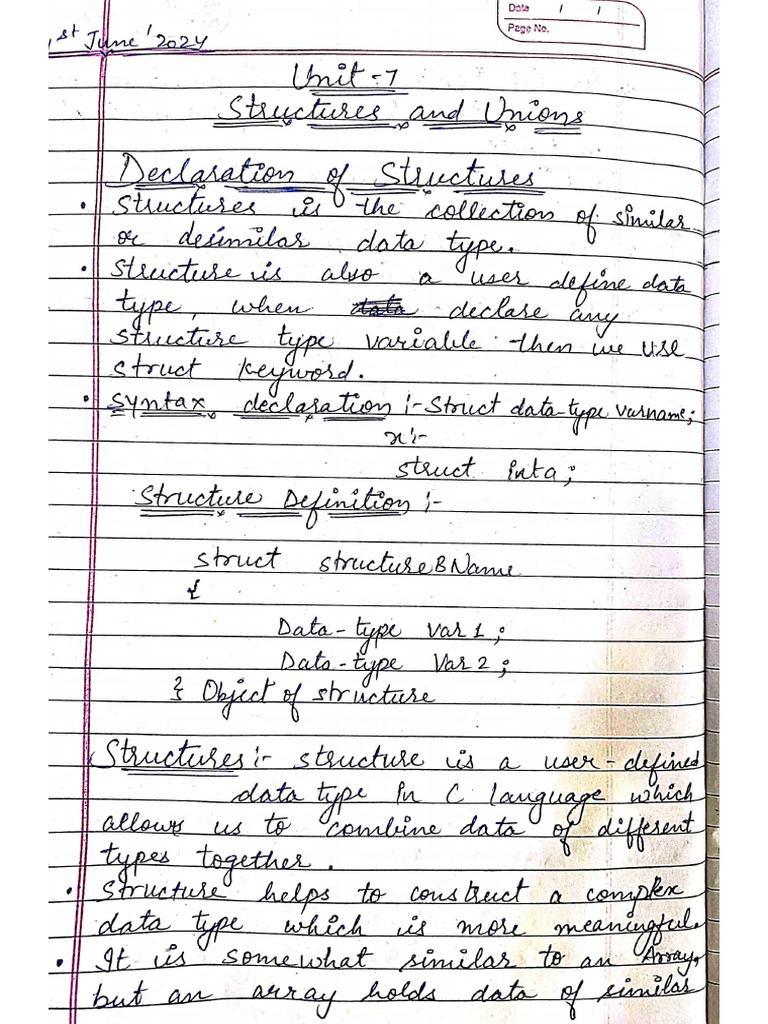 Date / /
Page No.
1st June '2024
Unit -7
Structures and Unions
Declaration of Structures
• Structures is the collection of similar
or desimilar data type.
• Structure is also a user define data
type, when declare any
structure type variable then we use
struct keyword.
• Syntax declaration :- Struct data-type varname;
x:-
struct int a;
Structure Definition :-
struct structureBName
{
Data-type Var 1;
Data-type Var 2;
} Object of structure
Structures :- structure is a user-defined
data type in C language which
allows us to combine data of different
types together.
• Structure helps to construct a complex
data type which is more meaningful.
• It is somewhat similar to an Array,
but an array holds data of similar